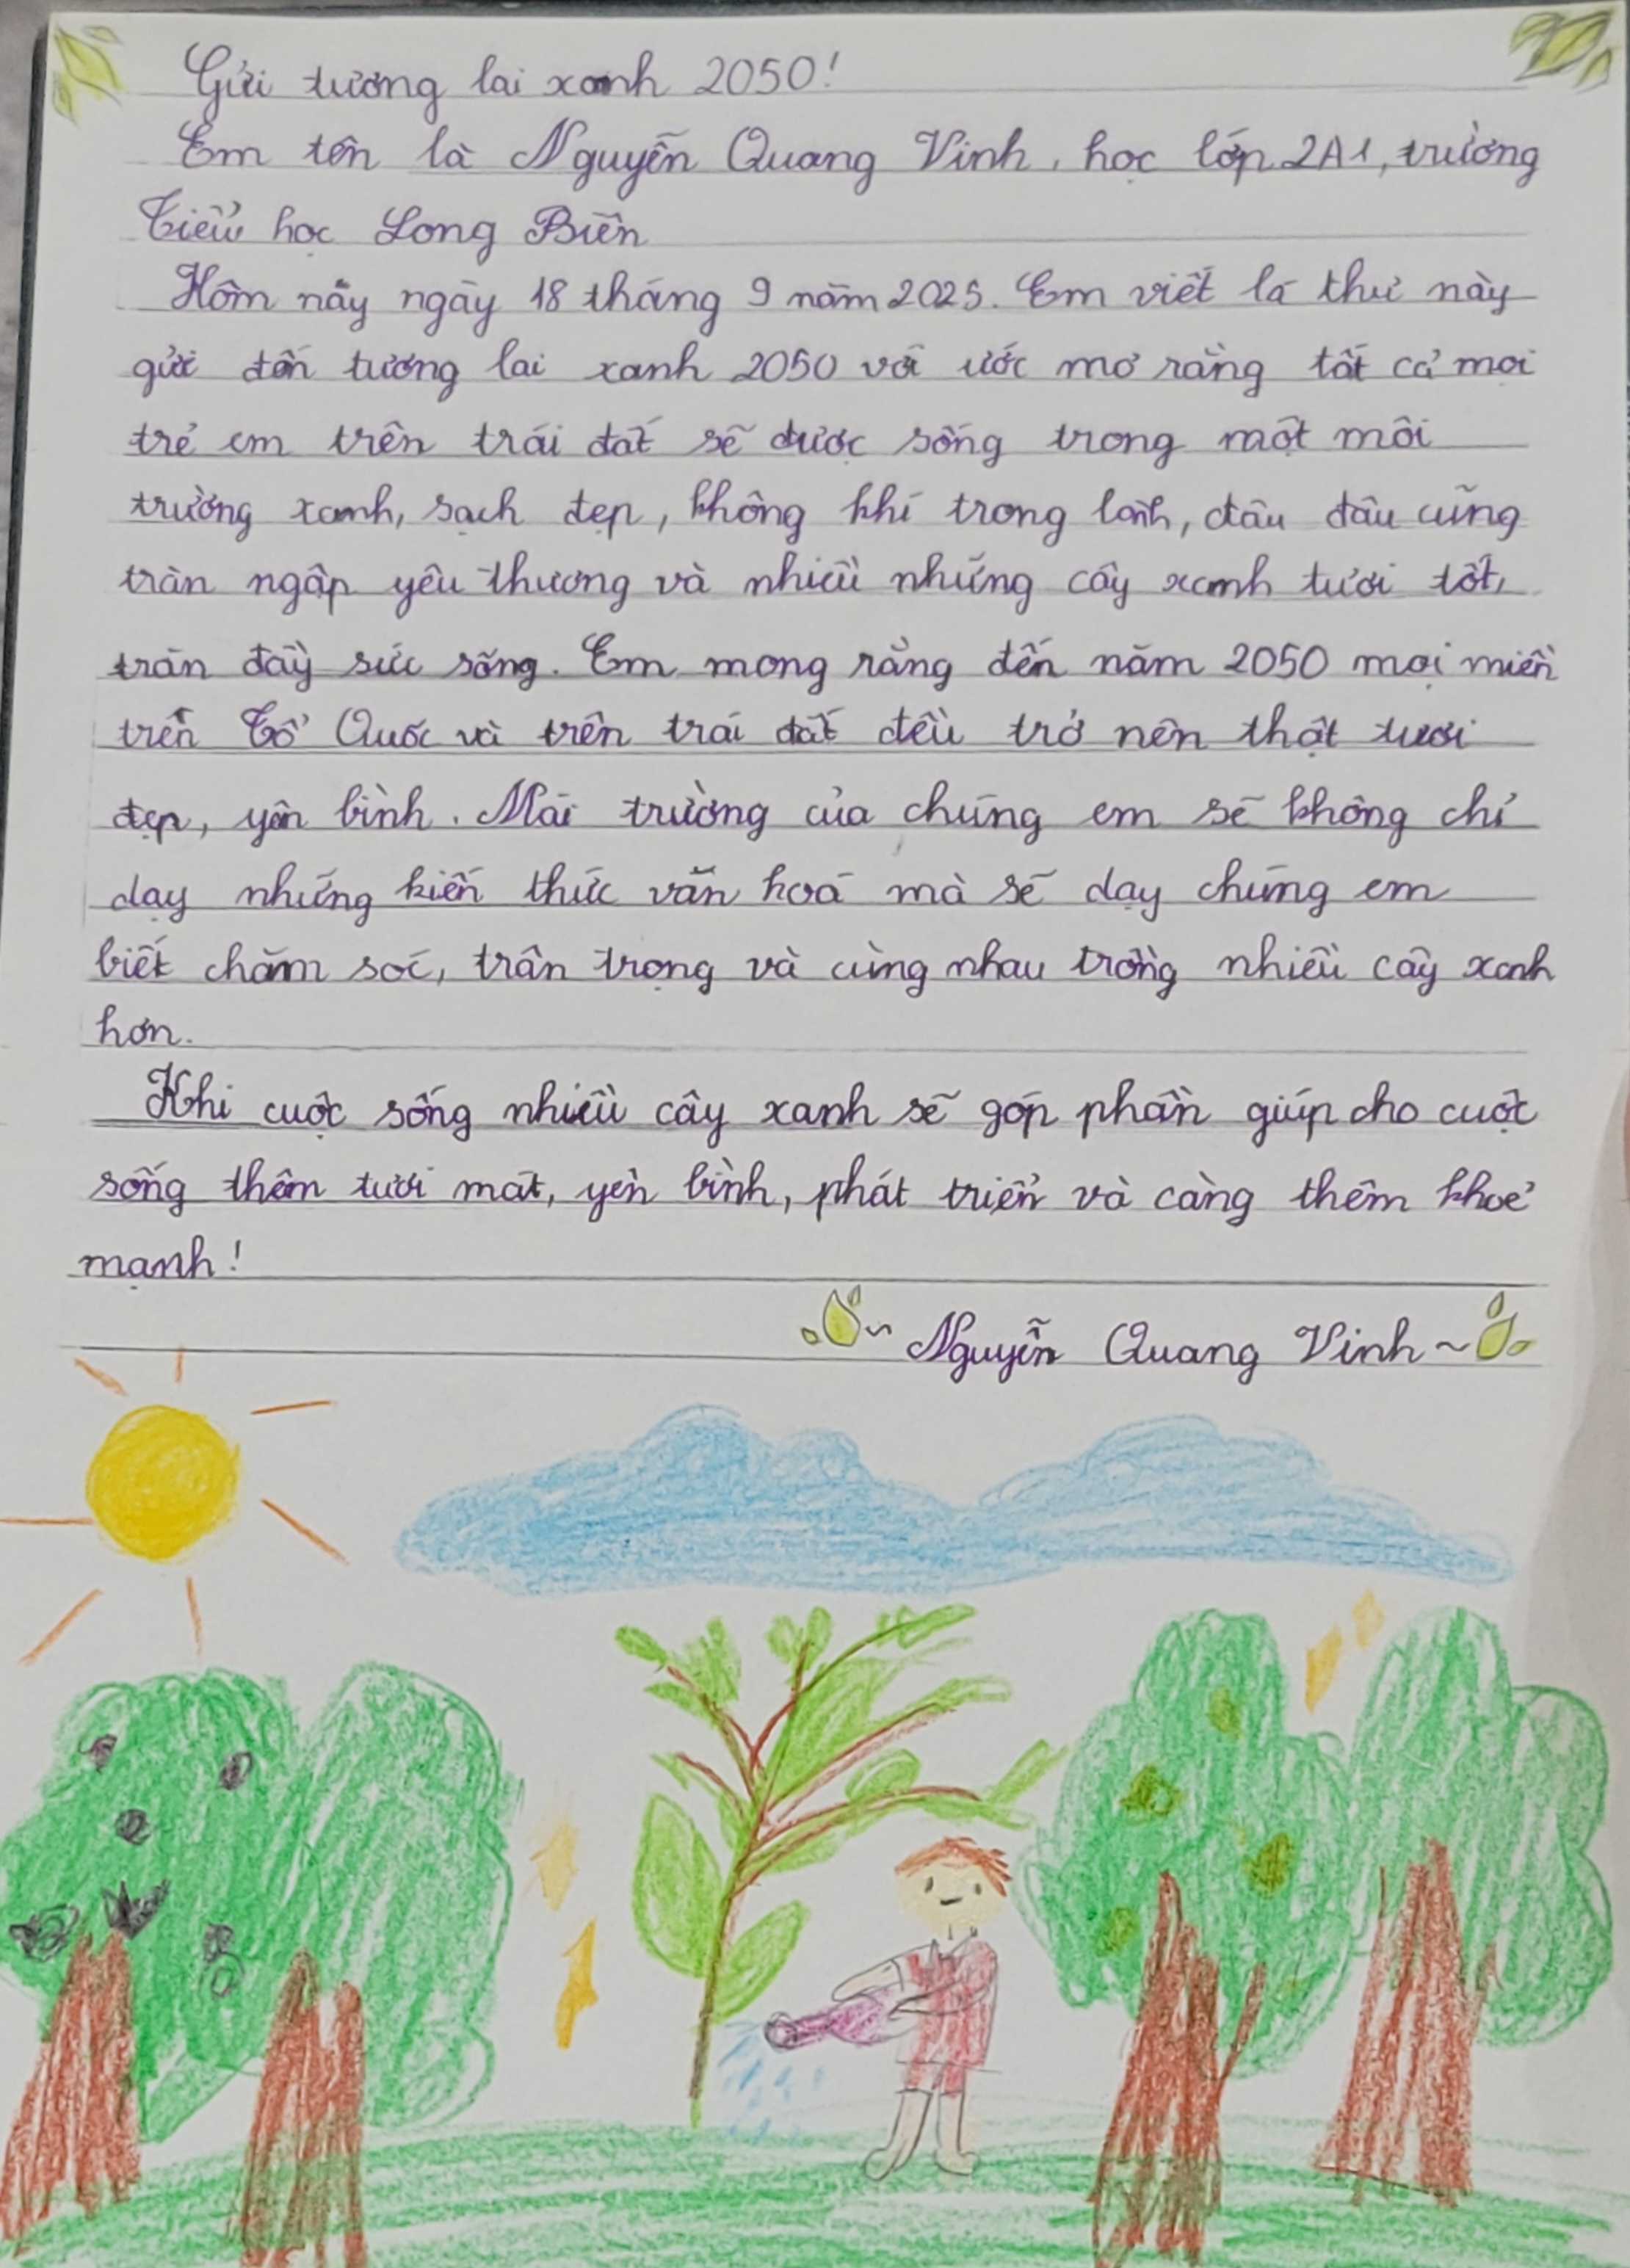 Gửi tương lai xanh 2050!
Em tên là Nguyễn Quang Vinh, học lớp 2A1, trường
Tiểu học Long Biên
Hôm nay ngày 18 tháng 9 năm 2025. Em viết lá thư này
gửi đến tương lai xanh 2050 với ước mơ rằng tất cả mọi
trẻ em trên trái đất sẽ được sống trong một môi
trường xanh, sạch đẹp, không khí trong lành, đâu đâu cũng
tràn ngập yêu thương và nhiều những cây xanh tươi tốt,
tràn đầy sức sống. Em mong rằng đến năm 2050 mọi miền
trên Tổ Quốc và trên trái đất đều trở nên thật tươi
đẹp, yên bình. Mái trường của chúng em sẽ không chỉ
dạy những kiến thức văn hoá mà sẽ dạy chúng em
biết chăm sóc, trân trọng và cùng nhau trồng nhiều cây xanh
hơn.
Khi cuộc sống nhiều cây xanh sẽ góp phần giúp cho cuộc
sống thêm tươi mát, yên bình, phát triển và càng thêm khoẻ
mạnh!
~ Nguyễn Quang Vinh ~